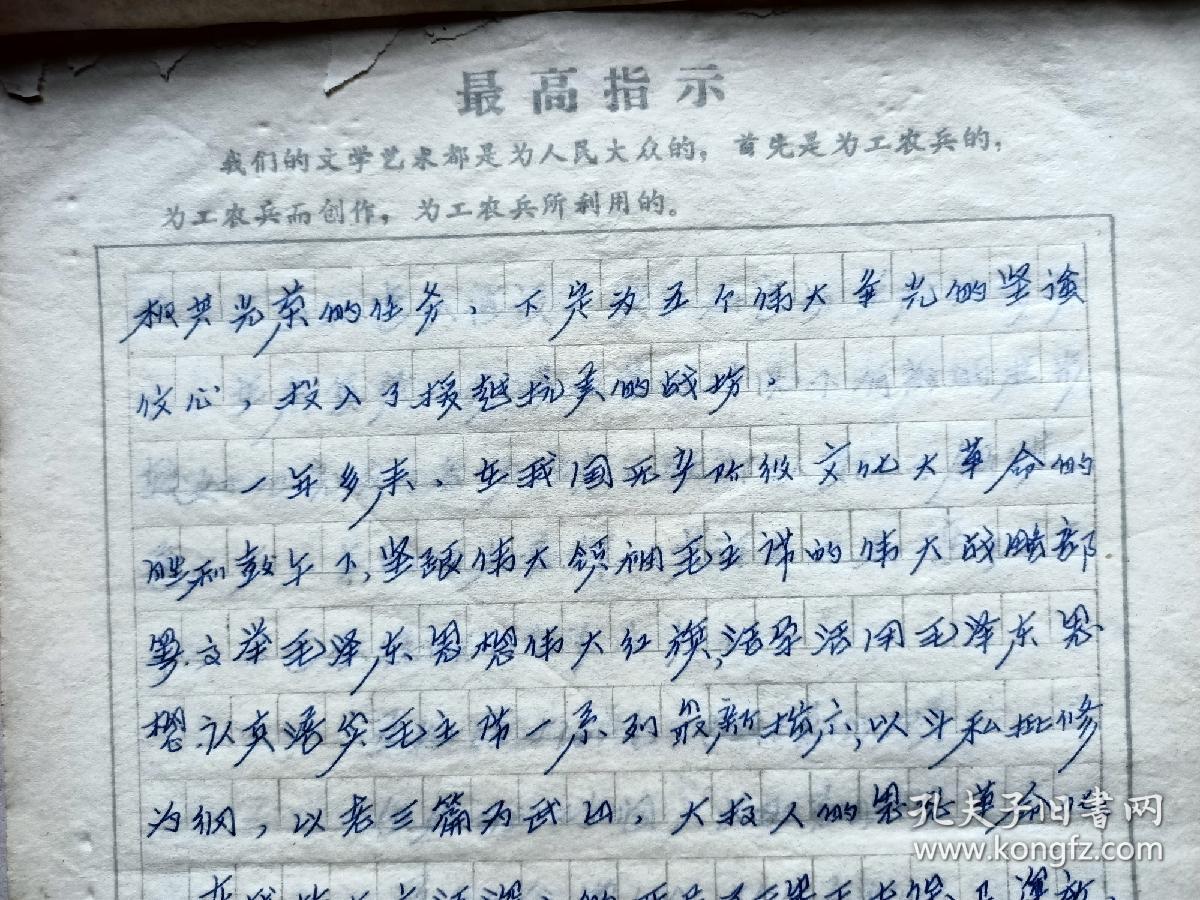 最高指示
我们的文学艺术都是为人民大众的，首先是为工农兵的，
为工农兵而创作，为工农兵所利用的。
极其光荣的任务，下定为五个伟大争光的坚强
决心，投入了援越抗美的战场。
一年多来，在我国无产阶级文化大革命的
胜利鼓午下，坚跟伟大领袖毛主席的伟大战略部
署，高举毛泽东思想伟大红旗，活学活用毛泽东思
想，认真落实毛主席一系列最新指示，以斗私批修
为纲，以老三篇为武器，大搞人的思想革命化
孔夫子旧书网
www.kongfz.com